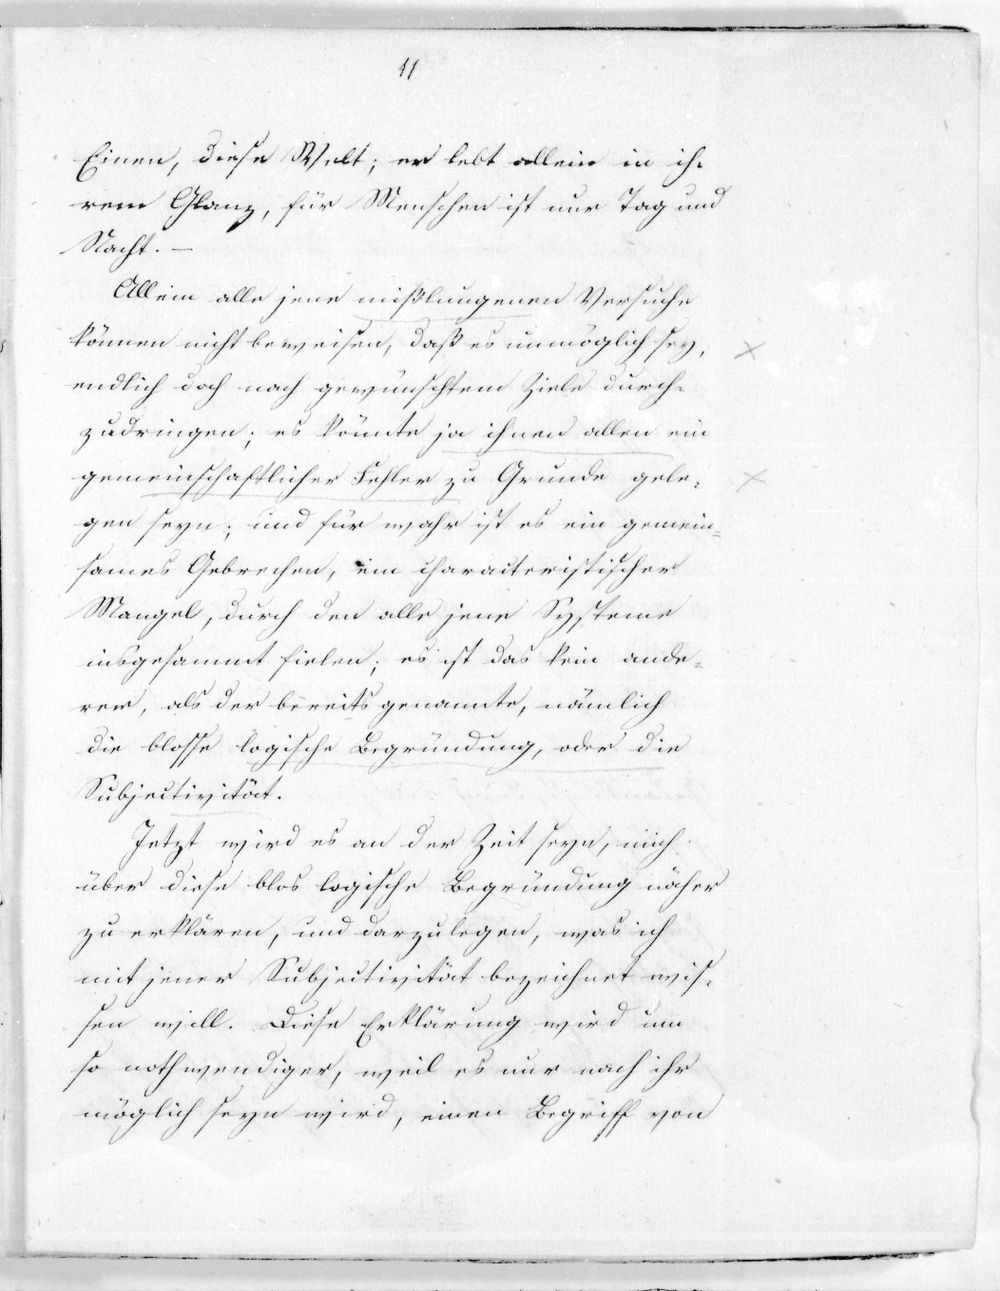 11
Einen, diese Welt; er lebt allein in ih-
rem Glanz, für Menschen ist nur Tag und
Nacht. —
Allein alle jene mißlungenen Versuche
können nicht beweisen, daß es unmöglich sey,
endlich doch nach gewünschtem Ziele durch-
zudringen; es könnte ja ihnen allen ein
gemeinschaftlicher Fehler zu Grunde gele-
gen seyn; und für wahr ist es ein gemein=
sames Gebrechen, ein characteristischer
Mangel, durch den alle jene Systeme
insgesammt fielen; es ist das kein ande=
rer, als der bereits genannte, nämlich
die blosse logische Begründung, oder die
Subjectivität.
Jetzt wird es an der Zeit seyn, mich
über diese blos logische Begründung näher
zu erklären, und darzulegen, was ich
mit jener Subjectivität bezeichnet wis-
sen will. Diese Erklärung wird um
so nothwendiger, weil es nur nach ihr
möglich seyn wird, einen Begriff von